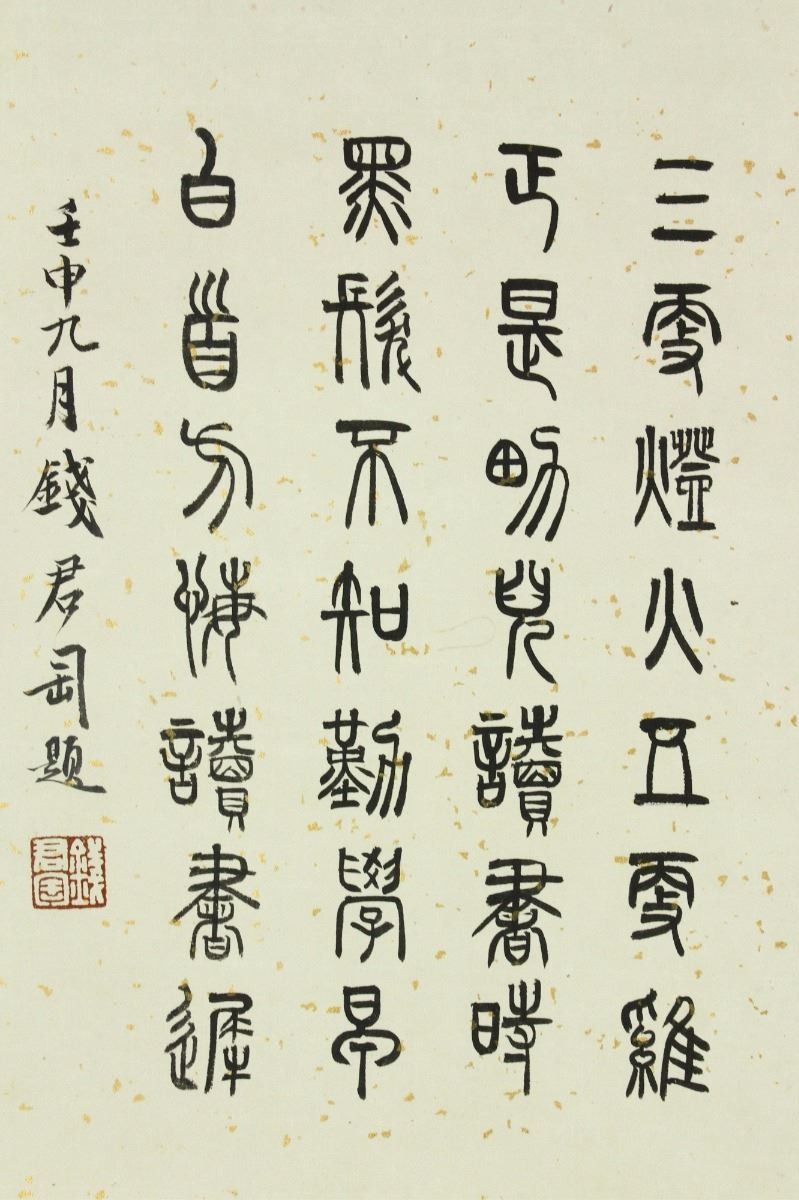 三更燈火五更雞
正是男兒讀書時
黑髮不知勤學早
白首方悔讀書遲
壬申九月錢君匋題